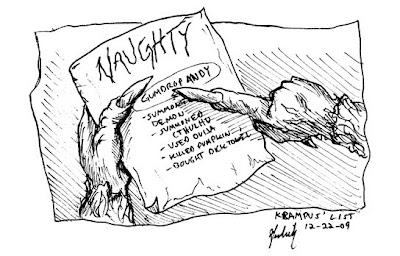 NAUGHTY
GUMDROP ANDY
- SUMMONED
DEMON
- SUMMONED
CTHULHU
- USED OUIJA
- KILLED PUMPKIN
- BOUGHT DECK
KRAMPUS' LIST
12-22-09